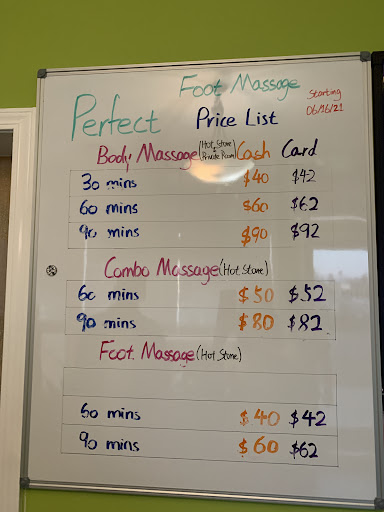 Foot Massage
Starting
06/16/21
Perfect
Price List
Body Massage (Hot Stone & Private Room) Cash Card
30 mins $40 $42
60 mins $60 $62
90 mins $90 $92
Combo Massage (Hot Stone)
60 mins $50 $52
90 mins $80 $82
Foot Massage (Hot Stone)
60 mins $40 $42
90 mins $60 $62